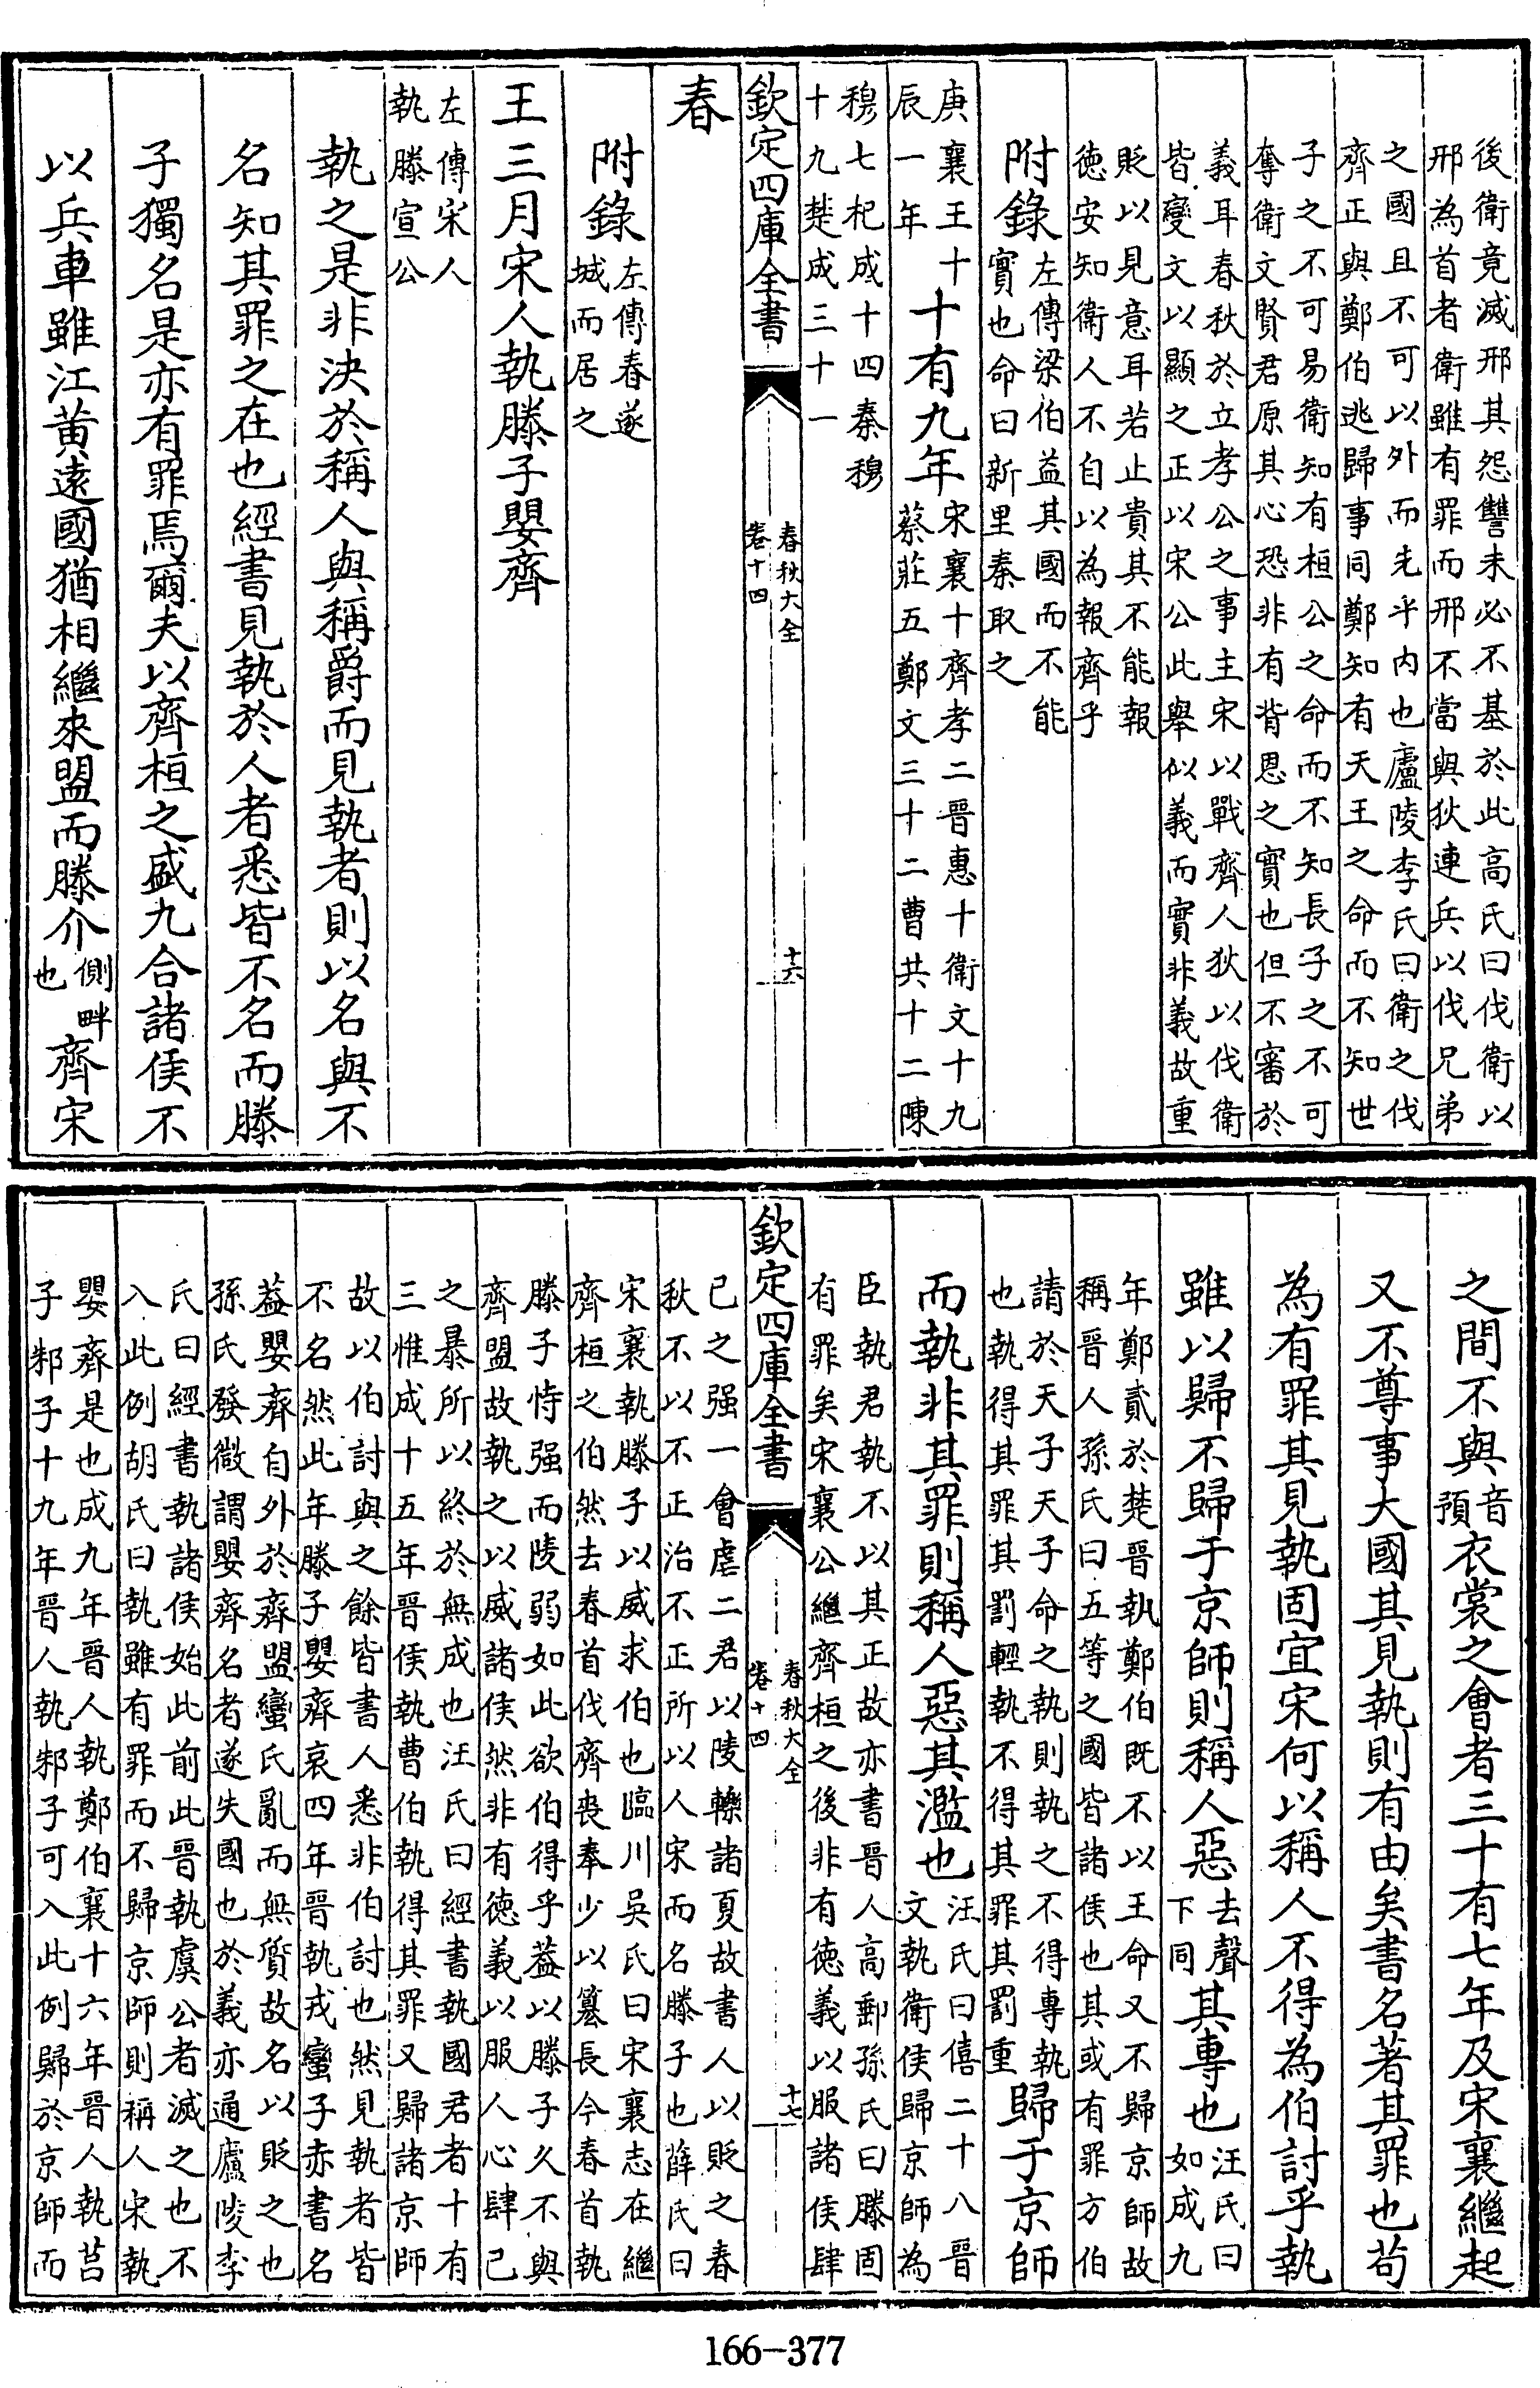 後衛竟滅邢其怨讐未必不基於此高氏曰伐衛以
邢為首者衛雖有罪而邢不當與狄連兵以伐兄弟
之國且不可以外而先乎内也廬陵李氏曰衛之伐
齊正與鄭伯逃歸事同鄭知有天王之命而不知世
子之不可易衛知有桓公之命而不知長子之不可
奪衛文賢君原其心恐非有背恩之實也但不審於
義耳春秋於立孝公之事主宋以戰齊人狄以伐衛
皆變文以顯之正以宋公此舉似義而實非義故重
貶以見意耳若止貴其不能報
徳安知衛人不自以為報齊乎
附錄
左傳梁伯益其國而不能
實也命曰新里秦取之
庚
辰
襄王十
一年
十有九年
宋襄十齊孝二晉惠十衛文十九
蔡莊五鄭文三十二曹共十二陳
穆七杞成十四秦穆
十九楚成三十一
欽定四庫全書
春秋大全
卷十四
十六
春
附錄
左傳春遂
城而居之
王三月宋人執滕子嬰齊
左傳宋人
執滕宣公
執之是非決於稱人與稱爵而見執者則以名與不
名知其罪之在也經書見執於人者悉皆不名而滕
子獨名是亦有罪焉爾夫以齊桓之盛九合諸侯不
以兵車雖江黄遠國猶相繼來盟而滕介側畔也齊宋
之間不與音預衣裳之會者三十有七年及宋襄繼起
又不尊事大國其見執則有由矣書名著其罪也苟
為有罪其見執固宜宋何以稱人不得為伯討乎執
雖以歸不歸于京師則稱人惡去聲下同其專也汪氏曰如成九
年鄭貳於楚晉執鄭伯既不以王命又不歸京師故
稱晉人孫氏曰五等之國皆諸侯也其或有罪方伯
請於天子天子命之執則執之不得專執
也執得其罪其罰輕執不得其罪其罰重
歸于京師
而執非其罪則稱人惡其濫也
汪氏曰僖二十八晉
文執衛侯歸京師為
臣執君執不以其正故亦書晉人高郵孫氏曰滕固
有罪矣宋襄公繼齊桓之後非有徳義以服諸侯肆
欽定四庫全書
春秋大全
卷十四
十七
已之强一會虐二君以陵轢諸夏故書人以貶之春
秋不以不正治不正所以人宋而名滕子也薛氏曰
宋襄執滕子以威求伯也臨川吳氏曰宋襄志在繼
齊桓之伯然去春首伐齊喪奉少以簒長今春首執
滕子恃强而陵弱如此欲伯得乎葢以滕子久不與
齊盟故執之以威諸侯然非有徳義以服人心肆已
之暴所以終於無成也汪氏曰經書執國君者十有
三惟成十五年晉侯執曹伯執得其罪又歸諸京師
故以伯討與之餘皆書人悉非伯討也然見執者皆
不名然此年滕子嬰齊哀四年晉執戎蠻子赤書名
葢嬰齊自外於齊盟蠻氏亂而無質故名以貶之也
孫氏發微謂嬰齊名者遂失國也於義亦通廬陵李
氏曰經書執諸侯始此前此晉執虞公者滅之也不
入此例胡氏曰執雖有罪而不歸京師則稱人宋執
嬰齊是也成九年晉人執鄭伯襄十六年晉人執莒
子邾子十九年晉人執邾子可入此例歸於京師而
166-377